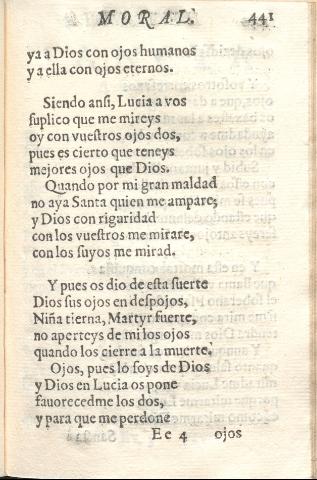 MORAL. 441
ya a Dios con ojos humanos
y a ella con ojos eternos.
Siendo ansi, Lucia a vos
suplico que me mireys
oy con vuestros ojos dos,
pues es cierto que teneys
mejores ojos que Dios.
Quando por mi gran maldad
no aya Santa quien me ampare;
y Dios con riguridad
con los vuestros me mirare,
con los suyos me mirad.
Y pues os dio de esta suerte
Dios sus ojos en despojos,
Niña tierna, Martyr fuerte,
no aparteys de mi los ojos
quando los cierre a la muerte.
Ojos, pues lo soys de Dios
y Dios en Lucia os pone
fauorecedme los dos,
y para que me perdone
Ee 4 ojos